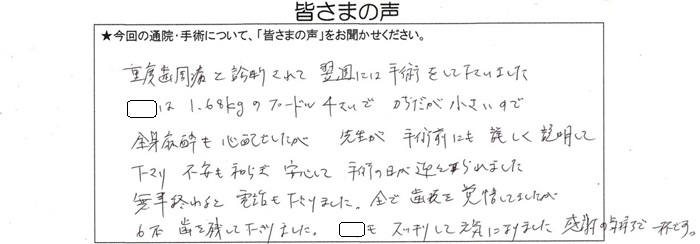 皆さまの声
★今回の通院・手術について、「皆さまの声」をお聞かせください。
重度歯周病と診断されて 翌週には手術をして下さいました
は 1.68kgのプードル4才で からだが小さいので
全身麻酔も心配でしたが 先生が 手術前にも 詳しく説明して
下さり 不安も和らぎ 安心して 手術の日が迎えられました
無事終わると 電話も下さりました。全て 抜歯を覚悟してましたが
6本 歯を残して下さりました。 も スッキリして元気になりました 感謝の気持で一杯です。